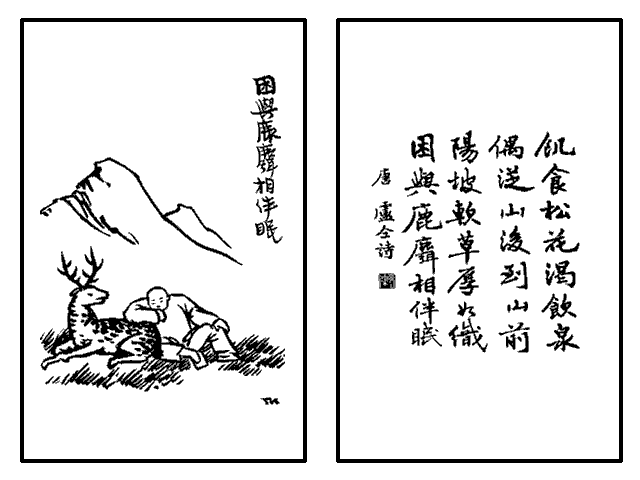 困與鹿麛相伴眠
TK
飢食松花渴飲泉
偶從山後到山前
陽坡軟草厚如織
困與鹿麛相伴眠
唐 盧仝詩